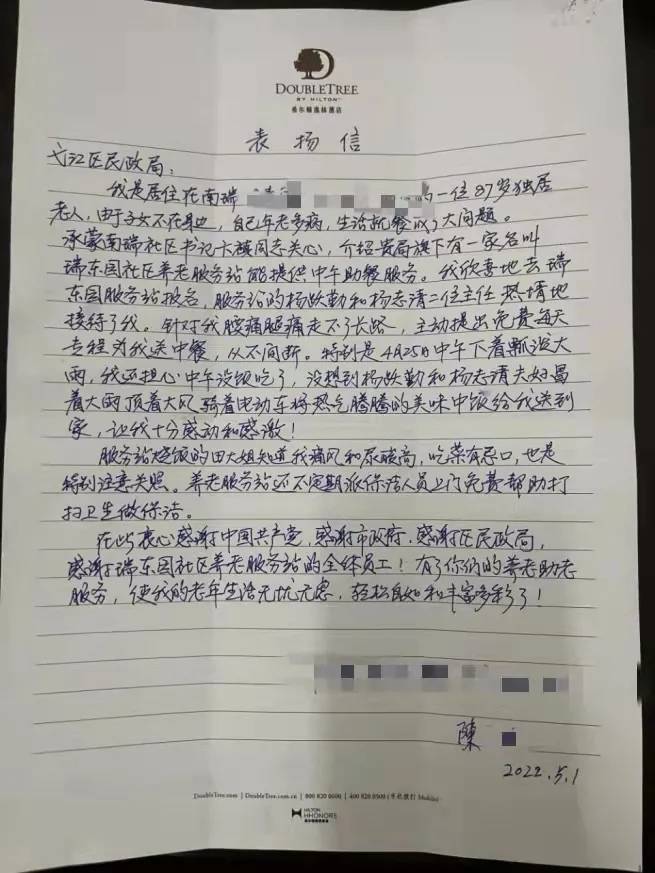 DOUBLETREE
BY HILTON™
希尔顿逸林酒店
表扬信
弋江区民政局：
我是居住在南瑞 的一位87岁独居
老人，由于子女不在身边，自己年老多病，生活就餐成了大问题。
承蒙南瑞社区书记卞 同志关心，介绍贵局旗下有一家名叫
瑞东园社区养老服务站能提供中午助餐服务。我欣喜地去瑞
东园服务站报名，服务站的杨跃勤和杨志清二位主任热情地
接待了我。针对我腰痛腿痛走不了长路，主动提出免费每天
专程为我送中餐，从不间断。特别是4月25日中午下着瓢泼大
雨，我还担心中午没饭吃了，没想到杨跃勤和杨志清夫妇冒
着大雨顶着大风骑着电动车将热气腾腾的美味中饭给我送到
家，让我十分感动和感激！
服务站烧饭的田大姐知道我痛风和尿酸高，吃菜有忌口，也是
特别注意关照。养老服务站还不定期派保洁人员上门免费帮助打
扫卫生做保洁。
在此衷心感谢中国共产党，感谢市政府，感谢区民政局，
感谢瑞东园社区养老服务站的全体员工！有了你们的养老助老
服务，使我的老年生活无忧无虑，轻松自如和丰富多彩了！
陳
2022.5.1
DoubleTree.com | DoubleTree.com.cn | 800 820 0600 | 400 820 0500 (手机拨打 Mobile)
HILTON
HHONORS